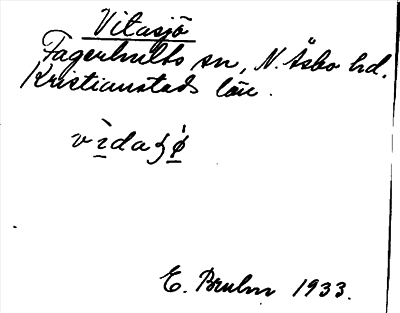 Vitasjö
Fagerhults sn, N. Åsbo hd.
Kristianstads län.
vìdaʒø̀
E. Bruhn 1933.